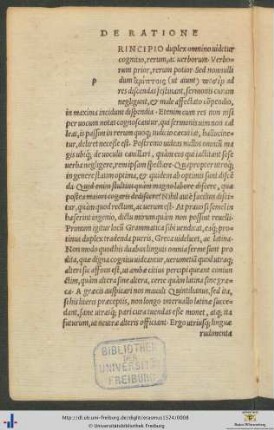 DE RATIONE
RINCIPIO duplex omnino uidetur
cognitio, rerum, ac uerborum. Verbo-
rum prior, rerum potior. Sed nonnulli
dum (ut aiunt) ad
p
res discendas festinant, sermonis curam
negligunt, & male affectato cõpendio,
in maxima incidunt dispendia. Etenim cum res non nisi
per uocum notas cognoscantur, qui sermonis uim non cal-
leat, is passim in rerum quoq; iudicio cæcutiat, hallucine-
tur, deliret necesse est. Postremo uideas nullos omniũ ma-
gis ubiq; de uoculis cauillari, quàm eos qui iactitant sese
uerba negligere, rem ipsam spectare. Quapropter utroq;
in genere statim optima, & quidem ab optimis sunt discẽ
da. Quid enim stultius quàm magno labore discere, quæ
postea maiore cogaris dediscere? Nihil autẽ facilius disci-
tur, quàm quod rectum, ac uerum est. At praua si semel in
hæserint ingenio, dictu mirum quàm non possint reuelli.
Primum igitur locũ Grammatica sibi uendicat, eaq; proti-
nus duplex tradenda pueris, Græca uidelicet, ac latina.
Non modo quod his duabus linguis omnia ferme sunt prodi-
ta, quæ digna cognitu uideantur, uerumetiã quod utraq;
alteri sic affinis est, ut ambæ citius percipi queant coniun-
ctim, quàm altera sine altera, certe quàm latina sine græ-
ca. A græcis auspicari nos mauult Quintilianus, sed ita,
si his literis præceptis, non longo interuallo latinæ succe-
dant, sane utrasq; pari cura tuendas esse monet, atq; ita
futurum, ut neutræ alteris officiant. Ergo utriusq; linguæ
rudimenta
BIBLIOTHEK
DER
UNIVERSITÄT
FREIBURG
http://dl.ub.uni-freiburg.de/diglit/erasmus1524/0008
© Universitätsbibliothek Freiburg
Baden-Württemberg